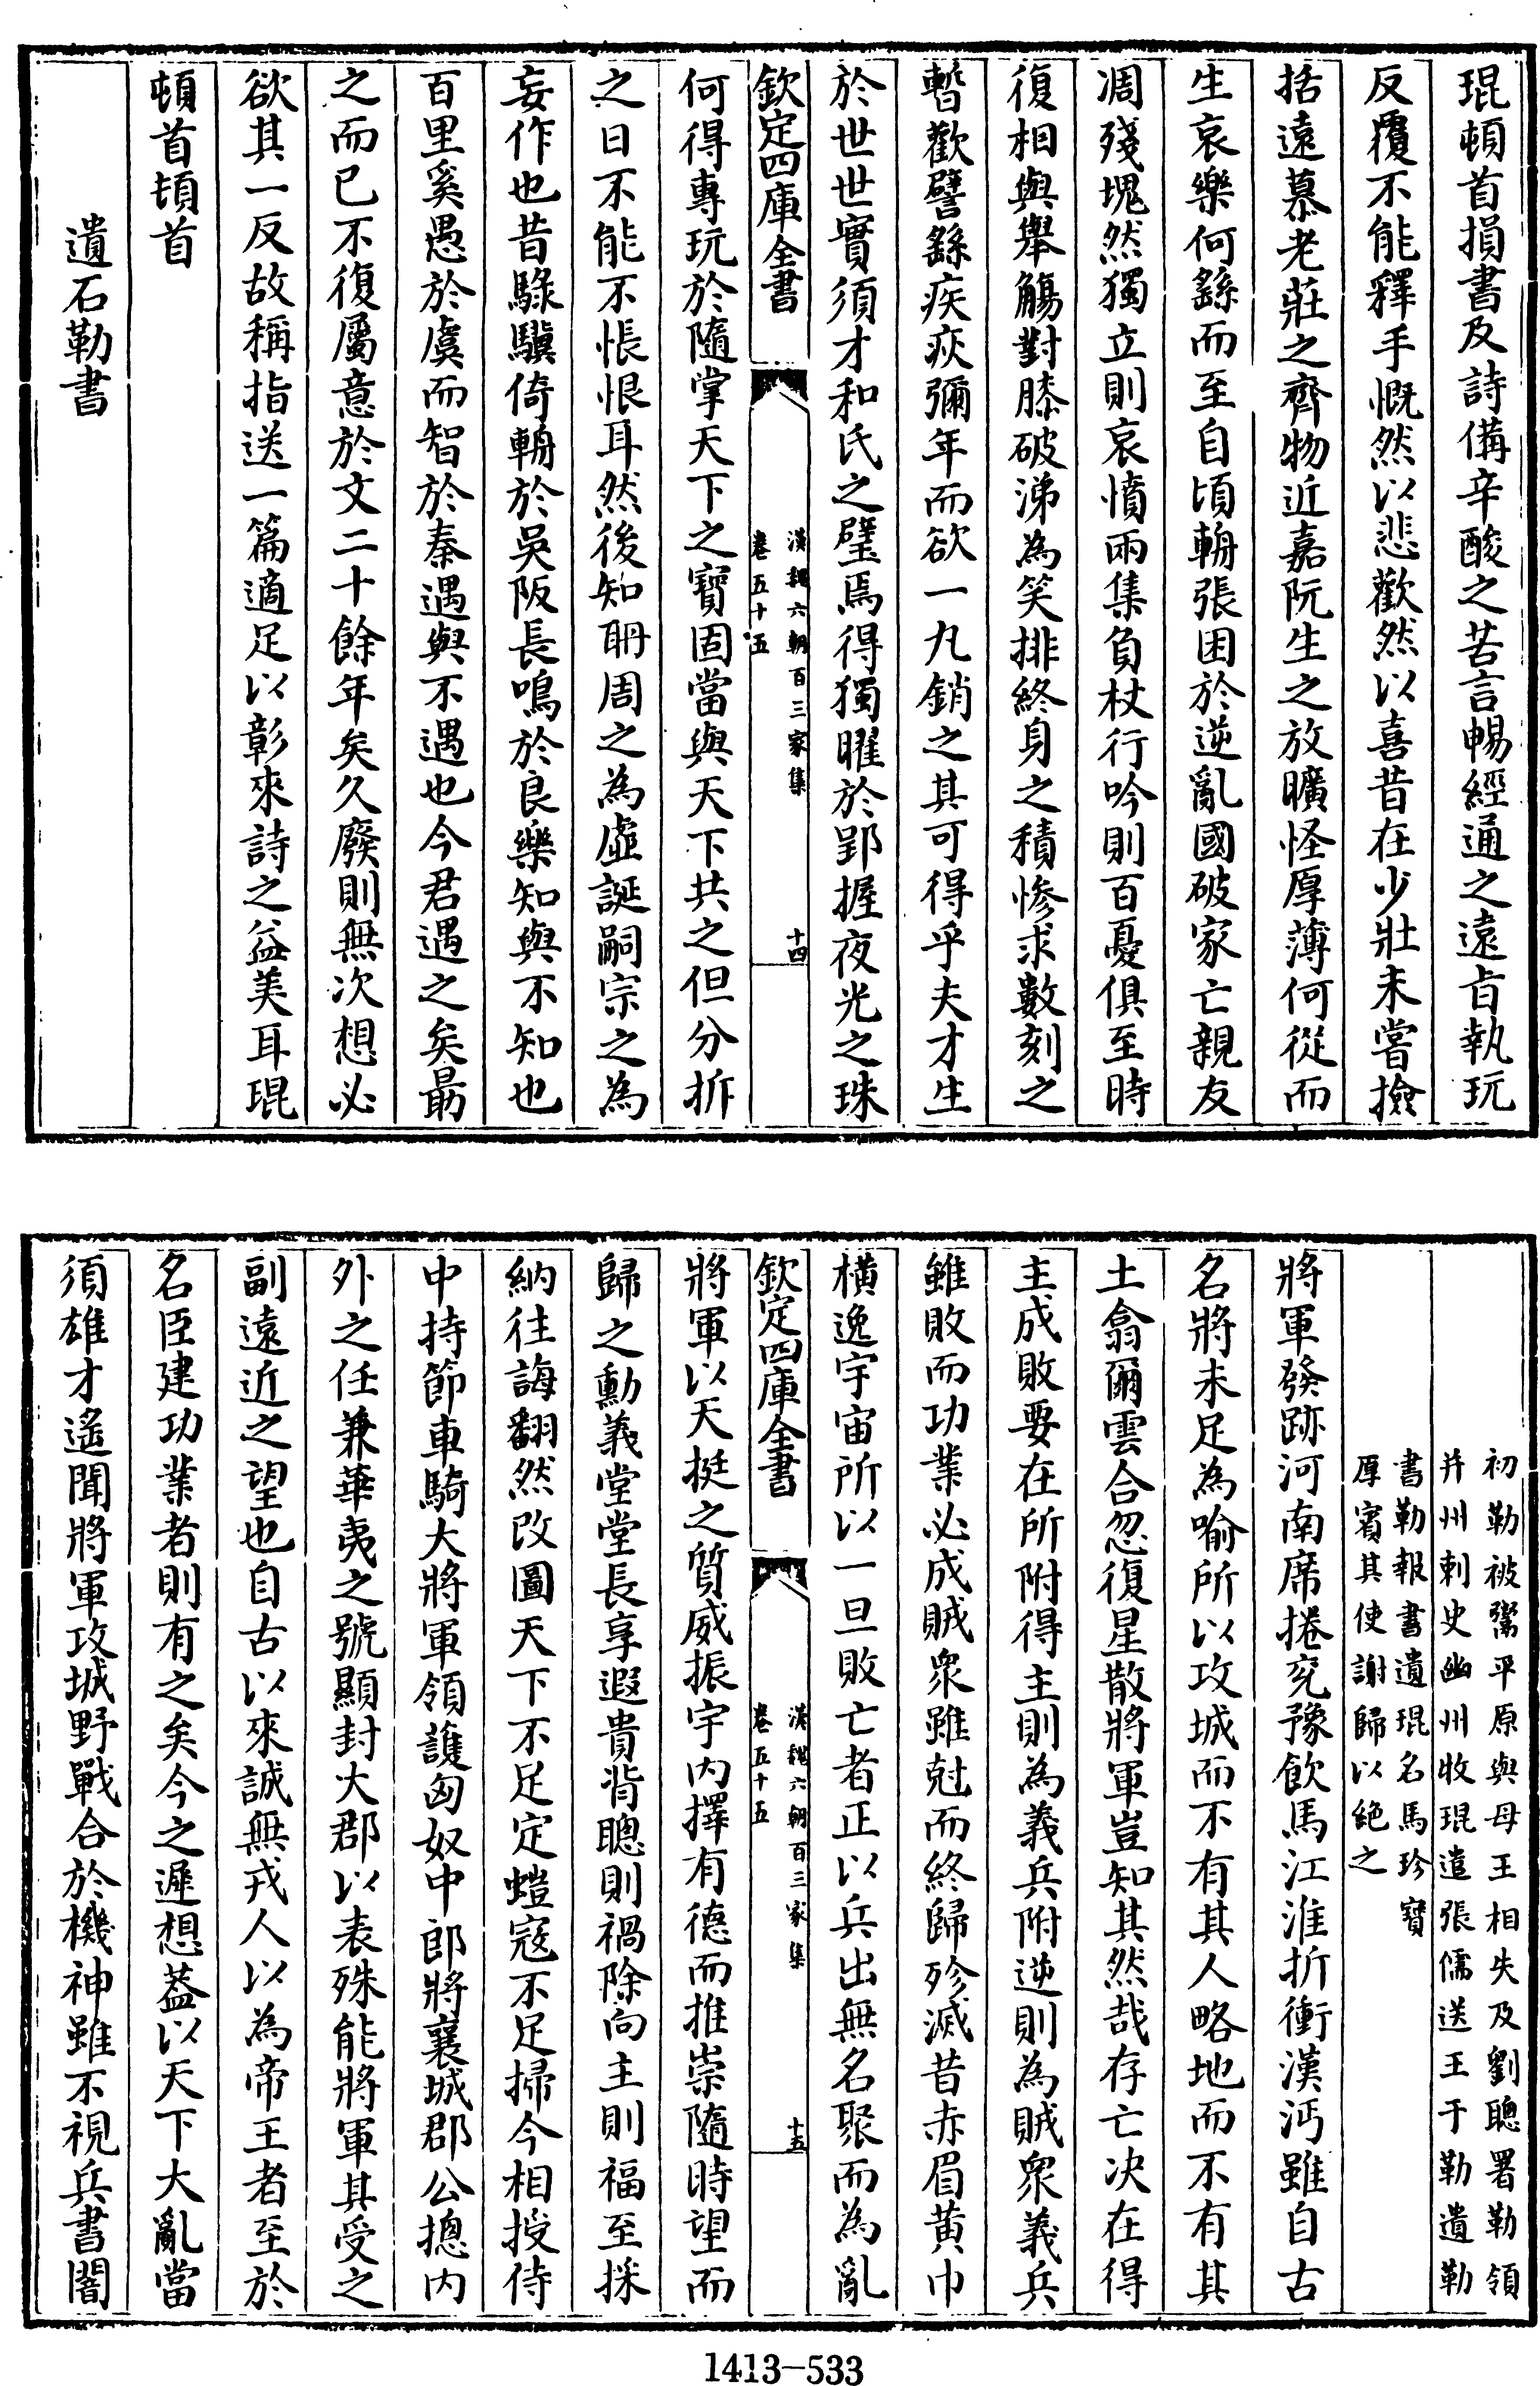 琨頓首損書及詩備辛酸之苦言暢經通之遠㫖執玩
反覆不能釋手慨然以悲歡然以喜昔在少壯未嘗撿
括遠慕老莊之齊物近嘉阮生之放曠怪厚薄何從而
生哀樂何繇而至自頃輈張困於逆亂國破家亡親友
凋殘塊然獨立則哀憤兩集負杖行吟則百憂俱至時
復相與舉觴對膝破涕為笑排終身之積慘求數刻之
暫歡譬繇疾疢彌年而欲一丸銷之其可得乎夫才生
於世世實須才和氏之璧焉得獨曜於郢握夜光之珠
欽定四庫全書
漢魏六朝百三家集
卷五十五
十四
何得專玩於隨掌天下之寶固當與天下共之但分折
之日不能不悵恨耳然後知耼周之為虛誕嗣宗之為
妄作也昔騄驥倚輈於吳阪長鳴於良樂知與不知也
百里奚愚於虞而智於秦遇與不遇也今君遇之矣勗
之而已不復屬意於文二十餘年矣久廢則無次想必
欲其一反故稱指送一篇適足以彰來詩之益美耳琨
頓首頓首
遺石勒書
初勒被鬻平原與母王相失及劉聰署勒領
并州刺史幽州牧琨遣張儒送王于勒遺勒
書勒報書遺琨名馬珍寶
厚賓其使謝歸以絶之
將軍發跡河南席捲兖豫飲馬江淮折衝漢沔雖自古
名將未足為喻所以攻城而不有其人略地而不有其
土翕爾雲合忽復星散將軍豈知其然哉存亡决在得
主成敗要在所附得主則為義兵附逆則為賊衆義兵
雖敗而功業必成賊衆雖尅而終歸殄滅昔赤眉黄巾
横逸宇宙所以一旦敗亡者正以兵出無名聚而為亂
欽定四庫全書
漢魏六朝百三家集
卷五十五
十五
將軍以天挺之質威振宇内擇有德而推崇隨時望而
歸之勳義堂堂長享遐貴背聰則禍除向主則福至採
納往誨翻然改圖天下不足定螘寇不足掃今相授侍
中持節車騎大將軍領護匈奴中郎將襄城郡公摠内
外之任兼華夷之號顯封大郡以表殊能將軍其受之
副遠近之望也自古以來誠無戎人以為帝王者至於
名臣建功業者則有之矣今之遲想葢以天下大亂當
須雄才遙聞將軍攻城野戰合於機神雖不視兵書闇
1413-533